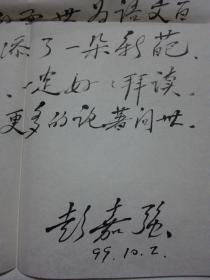 世为语文百
添了一朵新葩.
一定好好拜读.
更多的论著问世.
彭嘉强
99.10.2.